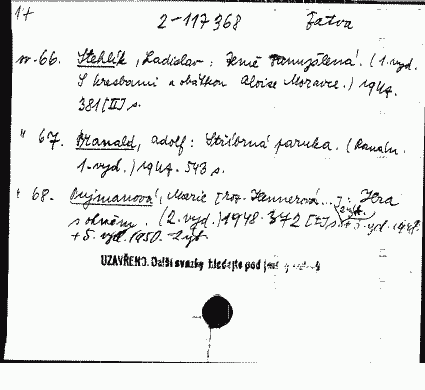 17
2-117368 Žatva
sv. 66. Stehlík, Ladislav: Země zamyšlená. (1. vyd.
S kresbami a obálkou Aloise Moravce.) 1947.
381 [II] s.
" 67. Branald, Adolf: Stříbrná paruka. (Román.
1. vyd.) 1947. 543 s.
" 68. Pujmanová, Marie [roz. Hennerová...]: Hra
s ohněm. (2. vyd.) 1948. 372 [I] s. + 3. vyd. 1948.
+ 5. vyd. 1950. 2 výt.
UZAVŘENO. Další svazky hledejte pod